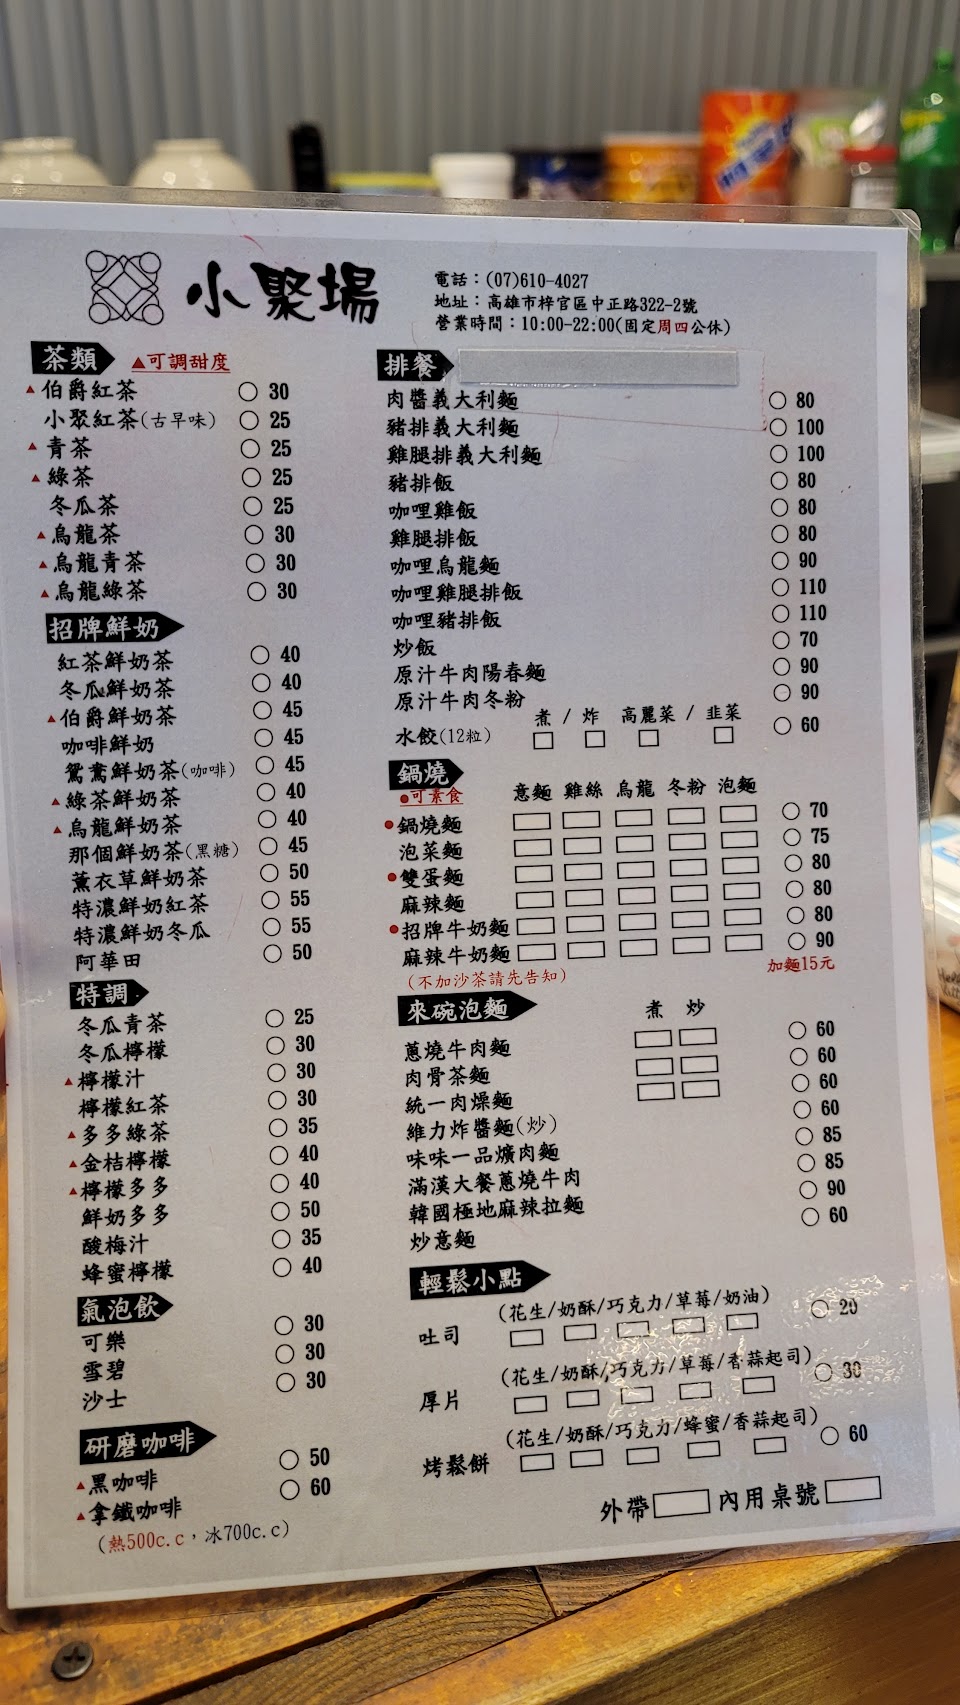 小聚場
電話：(07)610-4027
地址：高雄市梓官區中正路322-2號
營業時間：10:00-22:00(固定周四公休)
茶類 ▲可調甜度
▲伯爵紅茶 ○ 30
小聚紅茶(古早味) ○ 25
▲青茶 ○ 25
▲綠茶 ○ 25
冬瓜茶 ○ 25
▲烏龍茶 ○ 30
▲烏龍青茶 ○ 30
▲烏龍綠茶 ○ 30
招牌鮮奶
紅茶鮮奶茶 ○ 40
冬瓜鮮奶茶 ○ 40
▲伯爵鮮奶茶 ○ 45
咖啡鮮奶 ○ 45
鴛鴦鮮奶茶(咖啡) ○ 45
▲綠茶鮮奶茶 ○ 40
▲烏龍鮮奶茶 ○ 40
那個鮮奶茶(黑糖) ○ 45
薰衣草鮮奶茶 ○ 50
特濃鮮奶紅茶 ○ 55
特濃鮮奶冬瓜 ○ 55
阿華田 ○ 50
特調
冬瓜青茶 ○ 25
冬瓜檸檬 ○ 30
▲檸檬汁 ○ 30
檸檬紅茶 ○ 30
▲多多綠茶 ○ 35
▲金桔檸檬 ○ 40
▲檸檬多多 ○ 40
鮮奶多多 ○ 50
酸梅汁 ○ 35
蜂蜜檸檬 ○ 40
氣泡飲
可樂 ○ 30
雪碧 ○ 30
沙士 ○ 30
研磨咖啡
▲黑咖啡 ○ 50
▲拿鐵咖啡 ○ 60
(熱500c.c，冰700c.c)
排餐
肉醬義大利麵 ○ 80
豬排義大利麵 ○ 100
雞腿排義大利麵 ○ 100
豬排飯 ○ 80
咖哩雞飯 ○ 80
雞腿排飯 ○ 80
咖哩烏龍麵 ○ 90
咖哩雞腿排飯 ○ 110
咖哩豬排飯 ○ 110
炒飯 ○ 70
原汁牛肉陽春麵 ○ 90
原汁牛肉冬粉 ○ 90
煮 / 炸 高麗菜 / 韭菜
水餃(12粒) ○ 60
鍋燒
●可素食 意麵 雞絲 烏龍 冬粉 泡麵
●鍋燒麵 ○ 70
泡菜麵 ○ 75
●雙蛋麵 ○ 80
麻辣麵 ○ 80
●招牌牛奶麵 ○ 80
麻辣牛奶麵 ○ 90
(不加沙茶請先告知) 加麵15元
來碗泡麵 煮 炒
蔥燒牛肉麵 ○ 60
肉骨茶麵 ○ 60
統一肉燥麵 ○ 60
維力炸醬麵(炒) ○ 60
味味一品爌肉麵 ○ 85
滿漢大餐蔥燒牛肉 ○ 85
韓國極地麻辣拉麵 ○ 90
炒意麵 ○ 60
輕鬆小點
(花生/奶酥/巧克力/草莓/奶油)
吐司 ○ 20
(花生/奶酥/巧克力/草莓/香蒜起司)
厚片 ○ 30
(花生/奶酥/巧克力/蜂蜜/香蒜起司)
烤鬆餅 ○ 60
外帶 內用桌號